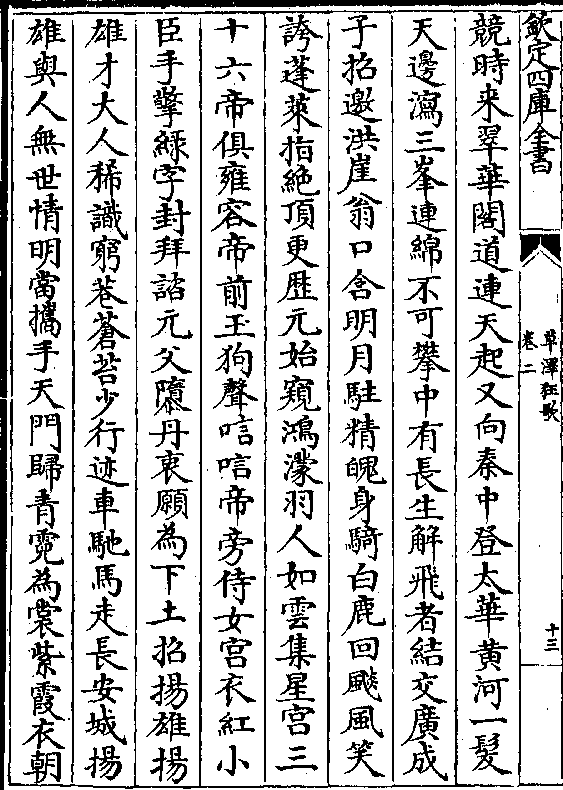 欽定四庫全書
草澤狂歌
卷二
十三
競時来翠華閣道連天起又向秦中登太華黄河一髪
天邊瀉三峯連綿不可攀中有長生解飛者結交廣成
子招邀洪崖翁口含明月駐精魄身騎白鹿回飈風笑
誇蓬萊指絶頂更歴元始窺鴻濛羽人如雲集星宫三
十六帝俱雍容帝前玉狗聲唁唁帝旁侍女宫衣紅小
臣手擎緑字封拜詔元父隳丹衷願為下土招揚雄揚
雄才大人稀識窮巷蒼苔少行迹車馳馬走長安城揚
雄與人無世情明當攜手天門歸青霓為裳紫霞衣朝